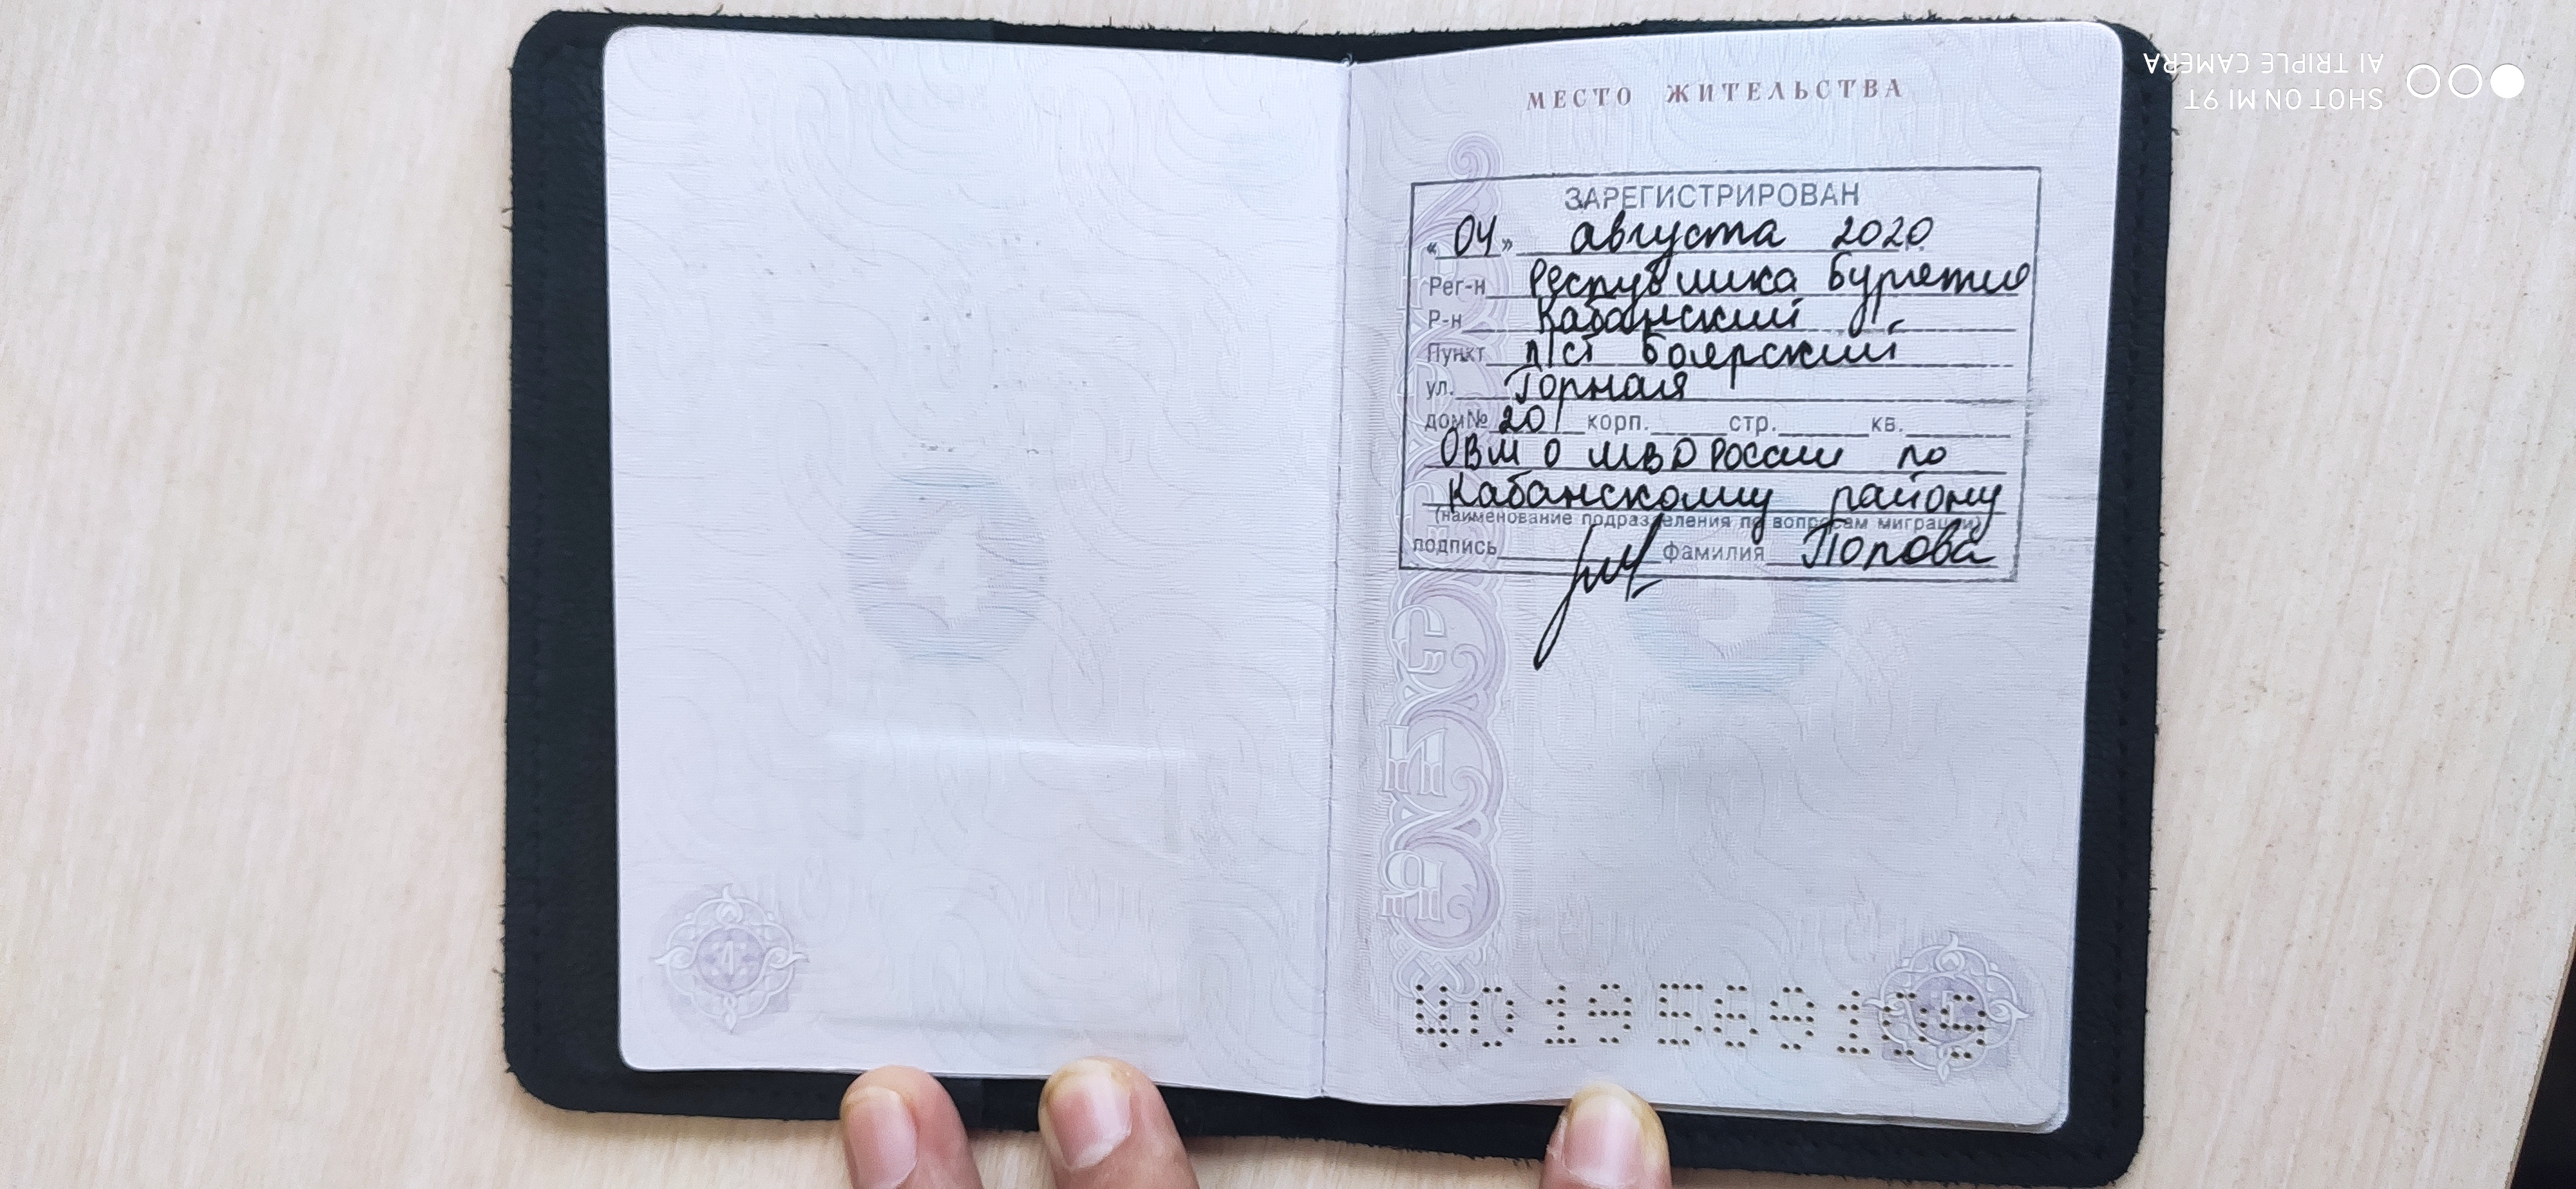 МЕСТО ЖИТЕЛЬСТВА
ЗАРЕГИСТРИРОВАН
«04» августа 2020
Рег-н Республика Бурятия
Р-н Кабанский
Пункт п/ст Боярский
ул. Горная
дом№ 20 корп. стр. кв.
ОВМ О МВД России по
Кабанскому району
(наименование подразделения по вопросам миграции)
подпись фамилия Попова
SHOT ON MI 9T
AI TRIPLE CAMERA